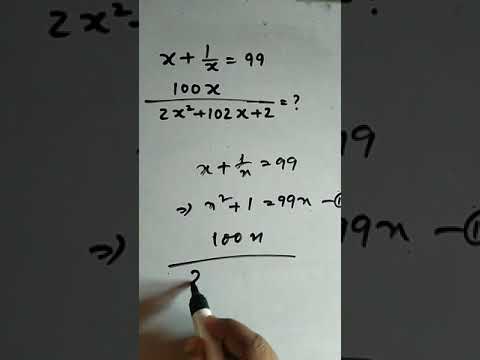 x + 1/x = 99
100x
2x²+102x+2 = ?
x + 1/x = 99
⇒ x²+1 = 99x — ①
100x
2